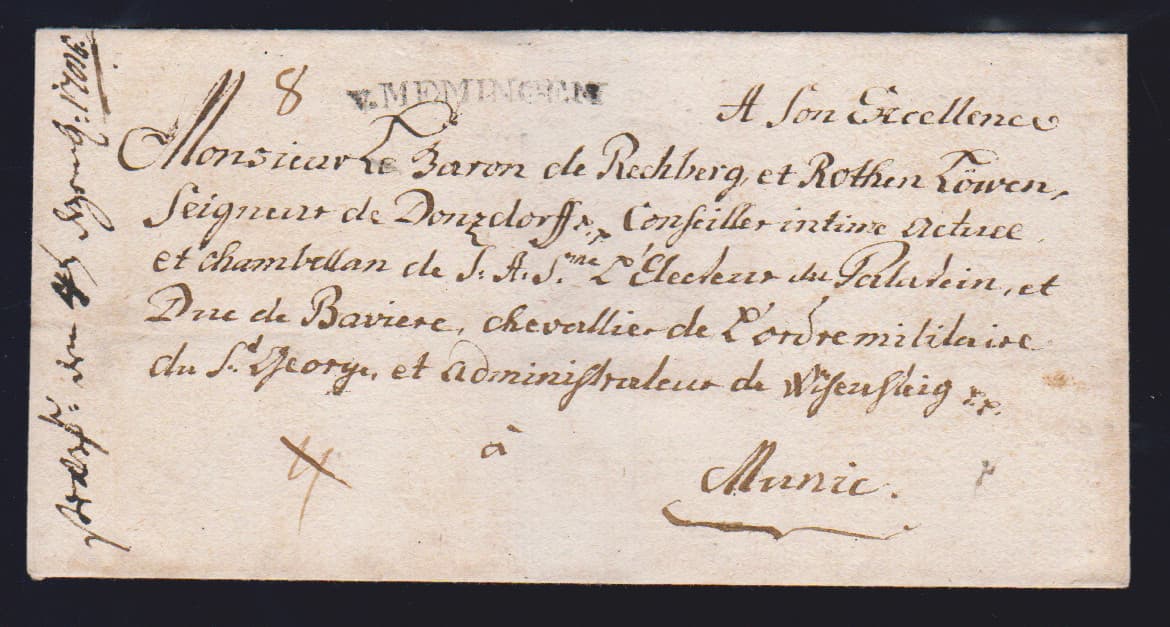 8
v. MEMINGEN
A Son Excellence
Monsieur Le Baron de Rechberg, et Rothen Löwen,
Seigneur de Donzdorff, Conseiller intime actuel,
et chambellan de S: A: S.me L'Electeur du Palatin, et
Duc de Baviere, chevallier de L'ordre militaire
du St. George, et administrateur de Wisensteig
à
Munic.
den